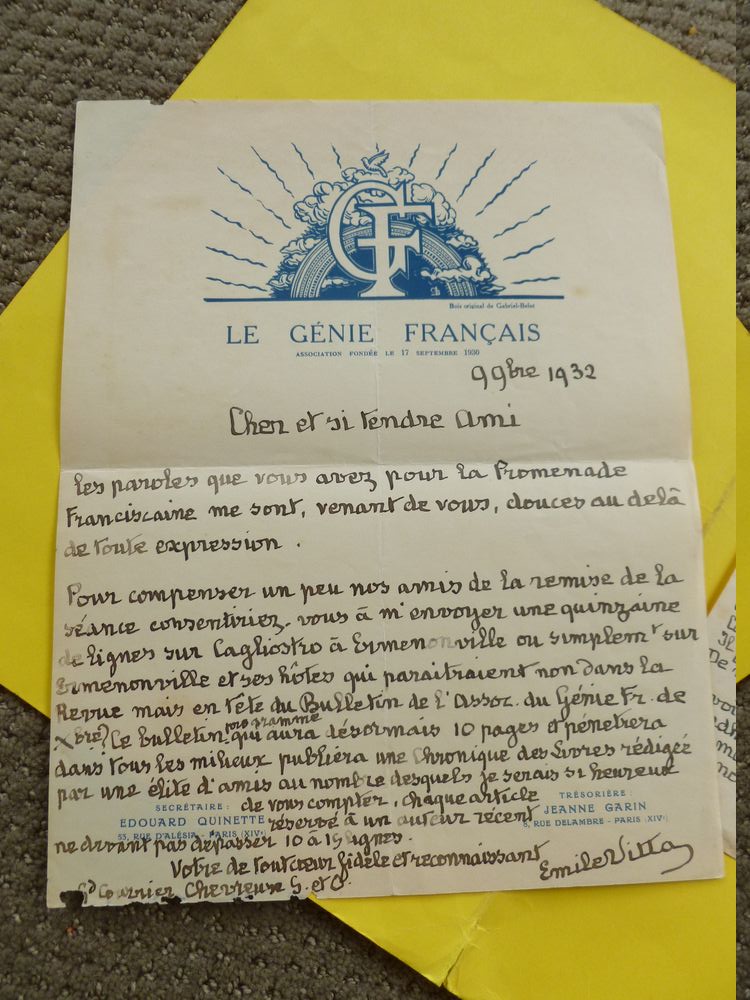 GF
Bois original de Gabriel-Belot
LE GÉNIE FRANÇAIS
ASSOCIATION FONDÉE LE 17 SEPTEMBRE 1930
9 9bre 1932
Cher et si tendre Ami
Les paroles que vous avez pour la Promenade
Franciscaine me sont, venant de vous, douces au delà
de toute expression .
Pour compenser un peu nos amis de la remise de la
séance consentiriez-vous à m'envoyer une quinzaine
de lignes sur Cagliostro à Ermenonville ou simplemt sur
Ermenonville et ses hôtes qui paraitraient non dans la
Revue mais en tête du Bulletin de l'Assoc. du Génie Fr. de
Xbre? Ce bulletin programme qui aura désormais 10 pages et pénètrera
dans tous les milieux publiera une Chronique des Livres rédigée
par une élite d'amis au nombre desquels je serais si heureux
de vous compter, chaque article
réservé à un auteur récent
ne devant pas dépasser 10 à 15 lignes.
SECRÉTAIRE :
EDOUARD QUINETTE
53, RUE D'ALÉSIA - PARIS (XIVe)
TRÉSORIÈRE :
JEANNE GARIN
8, RUE DELAMBRE - PARIS (XIVe)
Votre de tout cœur fidèle et reconnaissant
Emile Vitta
Courrier Chevreuse S. et O.